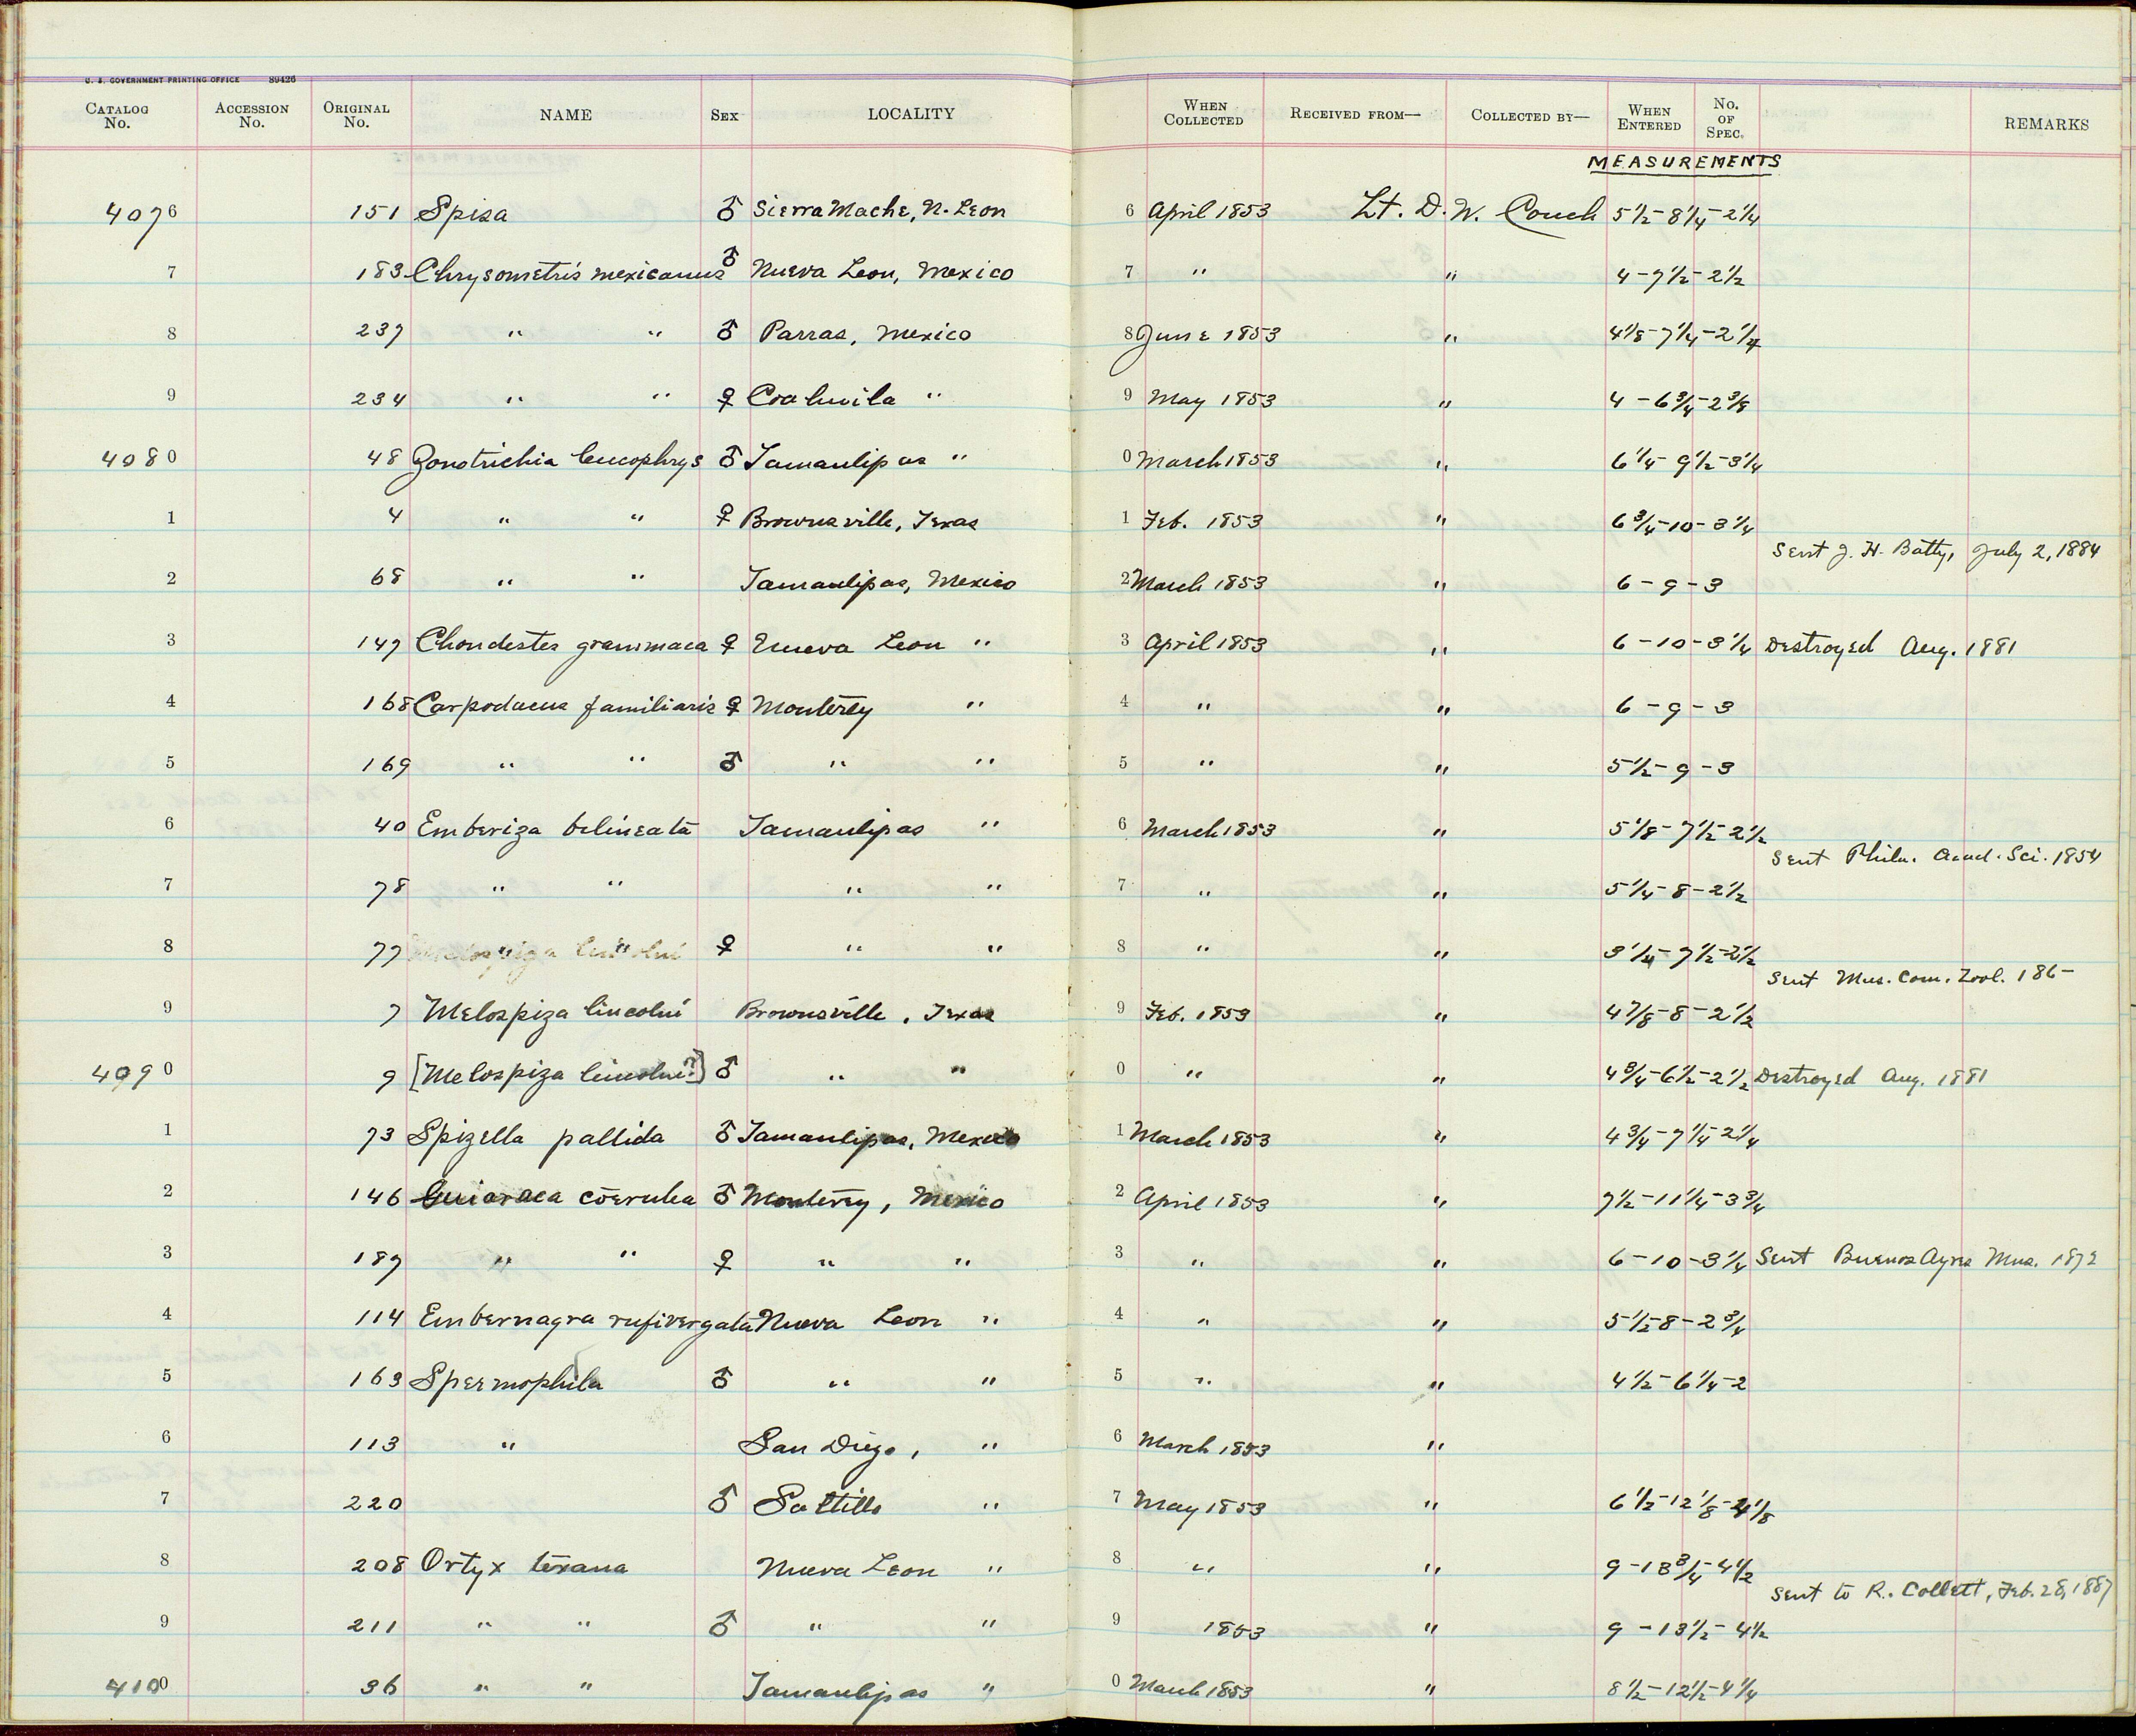 U. S. GOVERNMENT PRINTING OFFICE 89426
CATALOG No. ACCESSION No. ORIGINAL No. NAME SEX LOCALITY WHEN COLLECTED RECEIVED FROM— COLLECTED BY— WHEN ENTERED No. OF SPEC. REMARKS
MEASUREMENTS
4076 151 Spiza ♂ Sierra Mache, N. Leon 6 April 1853 Lt. D. N. Couch 5½-8¼-2¼
7 183 Chrysometris mexicanus ♂ Nueva Leon, Mexico 7 " " 4-7½-2½
8 237 " " ♂ Parras, Mexico 8 June 1853 " 4⅛-7¼-2¼
9 234 " " ♀ Coahuila " 9 May 1853 " 4-6¾-2⅜
4080 48 Zonotrichia leucophrys ♂ Tamaulipas " 0 March 1853 " 6¼-9½-3¼
1 4 " " ♀ Brownsville, Texas 1 Feb. 1853 " 6¾-10-3¼
Sent J. H. Batty, July 2, 1884
2 68 " " Tamaulipas, Mexico 2 March 1853 " 6-9-3
3 147 Chondestes grammaca ♀ Nueva Leon " 3 April 1853 " 6-10-3¼ Destroyed Aug. 1881
4 168 Carpodacus familiaris ♀ Monterey " 4 " " 6-9-3
5 169 " " ♂ " " 5 " " 5½-9-3
6 40 Emberiza belineata Tamaulipas " 6 March 1853 " 5⅛-7½-2½
Sent Phila. Acad. Sci. 1854
7 78 " " " " 7 " " 5¼-8-2½
8 77 " " ♀ " " 8 " " 3¼-7½-2½
Sent Mus. Com. Zool. 186-
9 7 Melospiza lincolni Brownsville, Texas 9 Feb. 1853 " 4⅞-8-2½
4090 9 [Melospiza lincolni?] ♂ " " 0 " " 4¾-6½-2½ Destroyed Aug. 1881
1 73 Spizella pallida ♂ Tamaulipas, Mexico 1 March 1853 " 4¾-7¼-2¼
2 146 Guiaraca cœrulea ♂ Monterey, Mexico 2 April 1853 " 7½-11¼-3¾
3 187 " " ♀ " " 3 " " 6-10-3¼ Sent Buenos Ayres Mus. 1872
4 114 Embernagra rufivergata Nueva Leon " 4 " " 5½-8-2¾
5 163 Spermophila ♂ " " 5 " " 4½-6¼-2
6 113 " San Diego, " 6 March 1853 "
7 220 ♂ Saltillo " 7 May 1853 " 6½-12⅛-4⅛
8 208 Ortyx texana Nueva Leon " 8 " " 9-13¾-4½
Sent to R. Collett, Feb. 28, 1887
9 211 " " ♂ " " 9 1853 " 9-13½-4½
4100 36 " " Tamaulipas " 0 March 1853 " 8½-12½-4¼